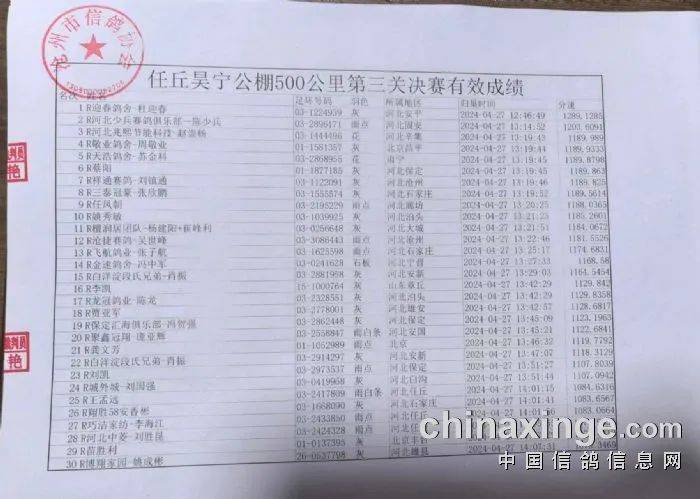 沧州市信鸽协会
任丘昊宁公棚500公里第三关决赛有效成绩
名次 姓名 足环号码 羽色 所属地区 归巢时间 分速
1 R迎春鸽舍-杜迎春 03-1224939 灰 河北安平 2024-04-27 12:46:49 1289.1285
2 R河北少兵赛鸽俱乐部-陈少兵 03-2896471 雨点 河北固安 2024-04-27 13:14:52 1203.6091
3 R河北兆熙节能科技-赵蛮杨 03-1444496 花 河北辛集 2024-04-27 13:19:41 1189.989
4 R敬业鸽舍-周敬业 01-1581357 灰 北京昌平 2024-04-27 13:19:44 1189.9333
5 R天浩鸽舍-苏金科 03-2868965 花 肃宁 2024-04-27 13:19:45 1189.8798
6 R蔡阳 01-1877185 灰 河北保定 2024-04-27 13:19:45 1189.863
7 R祥通赛鸽-刘镇通 03-1122091 灰 河北沧州 2024-04-27 13:19:46 1189.825
8 R三泰冠豪-张欣鹏 03-1555574 灰 河北石家庄 2024-04-27 13:19:52
9 R任凤朝 03-2195229 雨点 河北廊坊 2024-04-27 13:20:25 1188.0365
10 R姚秀敏 03-1039925 灰 河北泊头 2024-04-27 13:21:25 1185.2601
11 R檀润居团队-杨建阳+崔峰利 03-0256648 灰 河北大城 2024-04-27
12 R沧捷赛鸽-吴世峰 03-3086443 雨点 河北沧州 2024-04-27 1181.5526
13 R飞航鸽业-张子航 03-1625598 雨点 河北石家庄 2024-04-27 13:25:17 1174.6831
14 R金速鸽舍-冯中军 03-0241628 石板 河北宁晋 2024-04-27 13:27:33 1168.58
15 R白洋淀段氏兄弟-肖振 03-2881958 灰 河北安新 2024-04-27 13:29:03 1164.5454
16 R李凯 15-1000764 灰 山东章丘 2024-04-27 13:42:29 1129.842
17 R龙冠鸽业-陈龙 03-2328551 灰 河北泊头 2024-04-27 13:42:35 1129.8358
18 R贾亚军 03-3771089 灰 河北雄安 2024-04-27 1128.9577
19 R保定汇海俱乐部-冯贺强 03-2862448 灰 河北保定 2024-04-27 13:45:09 1123.1963
20 R聚鑫冠翔-庞亚辉 03-2558847 雨白条 河北安国 2024-04-27 13:45:21 1122.6841
21 R龚文芳 01-1052989 雨点 北京 2024-04-27 13:46:32 1119.7792
22 R白洋淀段氏兄弟-肖振 03-2914297 灰 河北安新 2024-04-27 1118.3129
23 R刘凯 03-2973537 雨点 河北保定 2024-04-27 1107.0794
24 R城外城-刘国强 03-0419968 灰 河北白沟 2024-04-27 1107.0458
25 R王孟远 03-2417809 雨白条 河北任丘 2024-04-27 14:01:15 1084.6316
26 R翔胜58安香彬 03-1668090 灰 河北石家庄 2024-04-27 14:01:10 1084.6567
27 R巧洁家纺-李海江 03-2433438 雨点 河北任丘 2024-04-27 14:01:56 1083.0664
28 R河北中菱-刘胜昆 03-2424328 雨点 河北
29 R苗胜利 01-0137393 灰 北京丰台
30 R博翔家园-姚成彬 26-0537798 灰 河北雄县 2024-04-27 14:07:31
chinaxinge.com
中国信鸽信息网